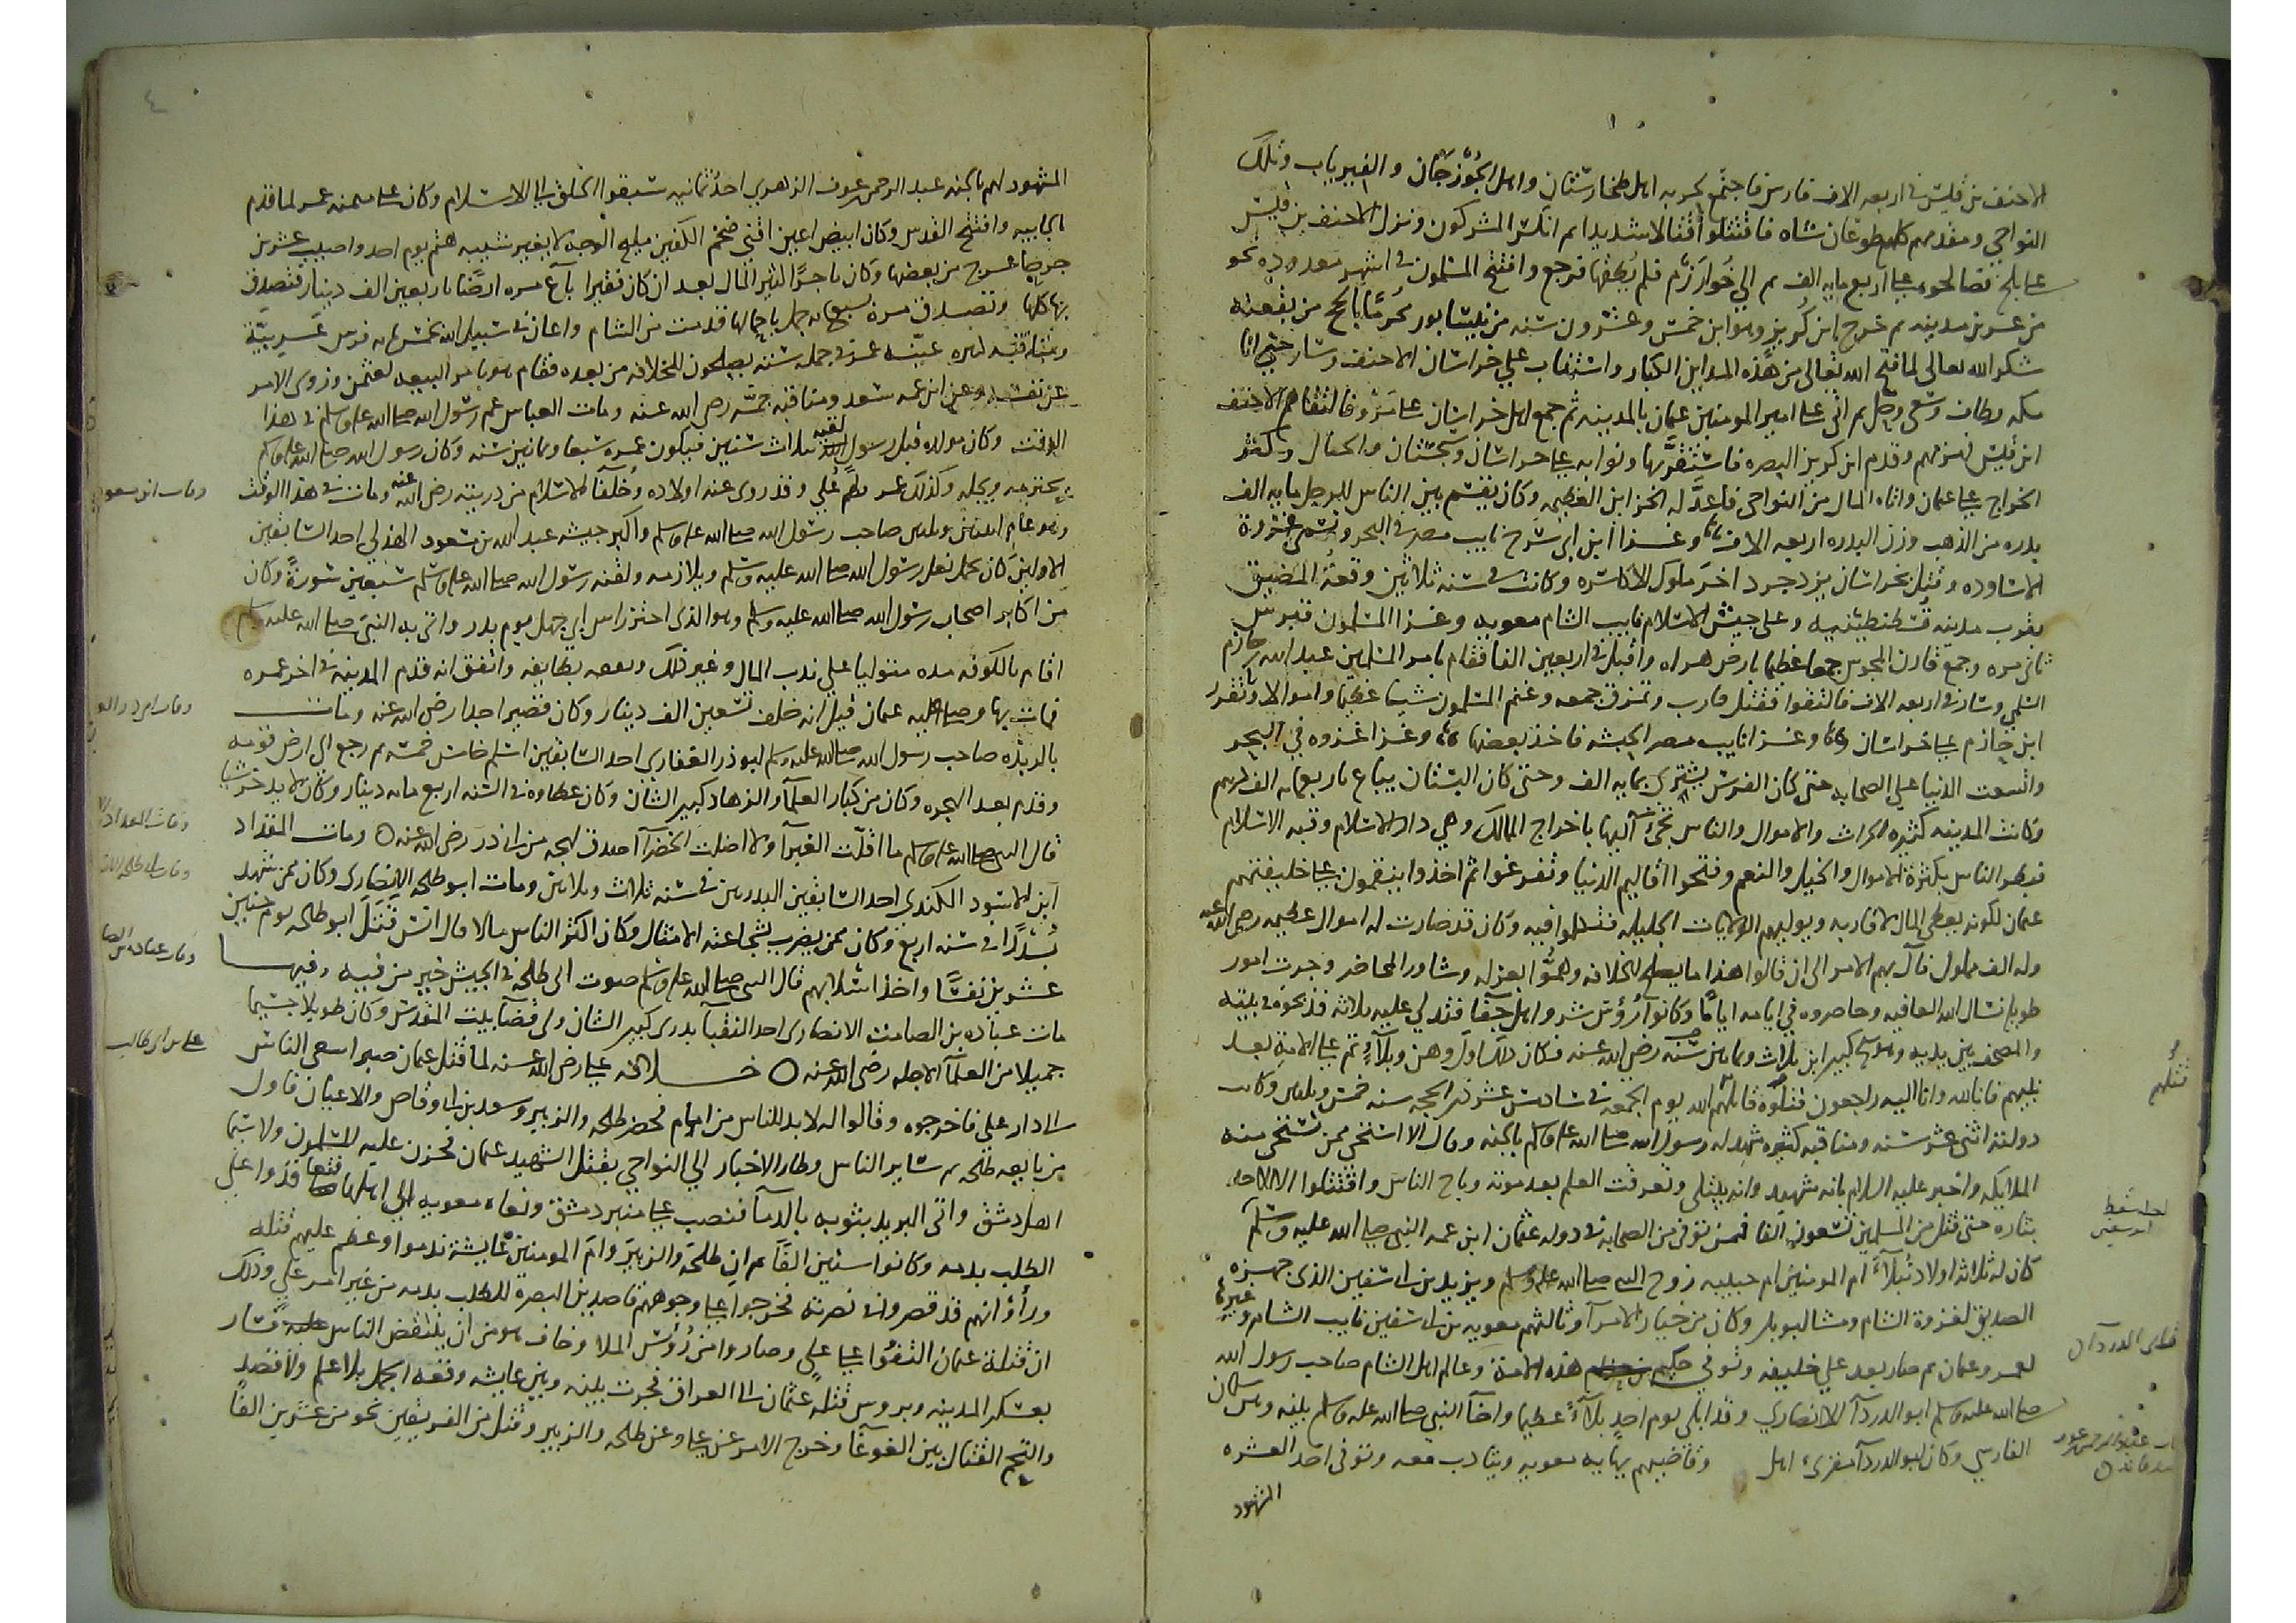 الاحنف بن قيس في اربعه الاف فارس فاجتمع لحربه اهل طخارستان واهل الجوزجان والفيرياب وتلك
النواحي ومقدمهم كلهم طوغان شاه فاقتتلوا قتالا شديدا ثم انكسر المشركون ونزل الاحنف بن قيس
على بلخ فصالحوه على اربع مايه الف ثم اتى خوارزم فلم يطقها فرجع وافتتح المسلمون في اشهر معدوده نحو
من عشرين مدينه ثم خرج ابن كريز وهو ابن خمس وعشرون سنه من نيسابور محرما بالحج من بقعته
شكر الله تعالى لما فتح الله تعالى من هذه المداين الكبار واستناب على خراسان الاحنف وسار حتى اتا
مكه وطاف وسعى وحل ثم اتى على امير المومنين عثمان بالمدينه ثم جمع اهل خراسان على مرو فالتقاهم الاحنف
ابن قيس فهزمهم وقدم ابن كريز البصره فاستقر بها ونوابه على خراسان وسجستان والجبال وكثر
الخراج على عثمان واتاه المال من النواحي فاعد له الخزاين العظيمه وكان يقسم بين الناس للرجل مايه الف
بدره من الذهب وزن البدره اربعه الاف وغزا ابن ابي سرح نايب مصر في البحر وتسمى غزوة
الاساوده وقتل بخراسان يزدجرد اخر ملوك الاكاسره وكانت في سنه ثلاثين وقعة المضيق
بقرب مدينه قسطنطينيه وعلى جيش الاسلام نايب الشام معويه وغزا المسلمون قبرس
ثاني مره وجمع قارن المجوس جمعا عظيما بارض هراه واقبل في اربعين الفا فقام بامر المسلمين عبد الله بن خازم
السلمي وسار في اربعه الاف فالتقوا فقتل قارن وتمزق جمعه وغنم المسلمون شيا عظيما واموالا وتقرر
ابن خازم على خراسان وغزا نايب مصر الحبشه فاخذ بعضها وغزا غزوه في البحر
واتسعت الدنيا على الصحابه حتى كان الفرس يشترى بمايه الف وحتى كان البستان يباع باربعمايه الف درهم
وكانت المدينه كثيره الخيرات والاموال والناس تجبى اليها باخراج الممالك وهي دار الاسلام وقبه الاسلام
فبطر الناس بكثرة الاموال والخيل والنعم وفتحوا اقاليم الدنيا وتفرغوا ثم اخذوا ينقمون على خليفتهم
عثمان لكونه يعطي المال لاقاربه ويوليهم الولايات الجليله فتكلموا فيه وكان قد صارت له اموال عظيمه رضي الله عنه
وله الف مملوك فآل بهم الامر الى ان قالوا هذا ما يصلح للخلافه وهموا بعزله وساروا لمحاضر وجرت امور
طويله نسال الله العافيه وحاصروه في ايامه اياما وكانوا رؤس شر واهل جفا فتدلى عليه ثلاثه فذبحوه في بيته
والمصحف بين يديه وهو شيخ كبير ابن ثلاث وثمانين سنه رضي الله عنه فكان ذلك اول وهن وبلاء تم على الامة بعد
نبيهم فانا لله وانا اليه راجعون قتلوه قاتلهم الله يوم الجمعه في سادس عشر ذي الحجه سنه خمس وثلاثين وكانت
دولته اثنى عشر سنه ومناقبه كثيره شهد له رسول الله صلى الله عليه وسلم بالجنه وقال الا استحي ممن تستحي منه
الملايكه واخبر عليه السلام بانه شهيد وانه يبتلى وتفرقت العلم بعد موته وباح الناس واقتتلوا
بثاره حتى قتل من المسلمين تسعون الفا فمن توفي من الصحابه في دوله عثمان ابن عمه النبي صلى الله عليه وسلم
كان له ثلاثه اولاد نبلآء ام المومنين ام حبيبه زوج النبي صلى الله عليه وسلم ويزيد بن ابي سفين الذي جهزه
الصديق لغزوة الشام ومشا وكان من خيار الامرآء وثالثهم معويه بن ابي سفين نايب الشام
لعمر وعثمان ثم صار بعد علي خليفه وتوفي حكيم هذه الامة وعالم اهل الشام صاحب رسول الله
صلى الله عليه وسلم ابو الدردآ الانصاري وقد ابلى يوم احد بلآء عظيما واخآ النبي صلى الله عليه وسلم بينه وبين سلمان
الفارسي وكان ابو الدردآ مقرى اهل وقاضيهم يهابه معويه ويتادب معه وتوفي احد العشره
المشهود
قتلهم
٤
المشهود لهم بالجنه عبد الرحمن عوف الزهري احد ثمانيه سبقوا الخلق الى الاسلام وكان على ميمنه عمر لما قدم
الجابيه وافتتح القدس وكان ابيض اعين اقنى ضخم الكفين مليح الوجه لا يغير شيبه هتم يوم احد واصيب عشرين
جرحا عرج من بعضها وكان تاجرا كثير المال بعد ان كان فقيرا باع مره ارضا باربعين الف دينار فتصدق
بها كلها وتصدق مره بسبع مايه جمل باحمالها قدمت من الشام واعان في سبيل الله بخمس مايه فرس عربيه
ومناقبه كثيره عينه عمر في جمله سته يصلحون للخلافه من بعده فقام هو بامر البيعه لعثمن وزوى الامر
عن نفسه وعن ابن عمه سعد ومناقبه جمه رضي الله عنه ومات العباس عم رسول الله صلى الله عليه وسلم في هذا
الوقت وكان مولده قبل رسول الله بثلاث سنين فيكون عمره سبعا وثمانين سنه وكان رسول الله صلى الله عليه وسلم
يحترمه ويجله وكذلك عمر وقد روى عنه اولاده وخلفآ الاسلام من ذريته رضي الله عنه ومات في هذا الوقت
وهو عام اثنين وثلثين صاحب رسول الله صلى الله عليه وسلم عبد الله بن مسعود الهذلي احد السابقين
الاولين كان يحمل نعل رسول الله صلى الله عليه وسلم ويلازمه ولقنه رسول الله صلى الله عليه وسلم سبعين سورة وكان
من اكابر اصحاب رسول الله صلى الله عليه وسلم وهو الذي احتز راس ابي جهل يوم بدر واتى به النبي صلى الله عليه وسلم
اقام بالكوفه مده متوليا على بيت المال وغير ذلك واتفق انه قدم المدينه في اخر عمره
فمات بها وصلى عليه عثمان قيل انه خلف تسعين الف دينار وكان قصير اجدا رضي الله عنه ومات
بالربذه صاحب رسول الله صلى الله عليه وسلم ابو ذر الغفاري احد السابقين اسلم خامس خمسه ثم رجع الى ارض قومه
وقدم بعد الهجره وكان من كبار العلمآ والزهاد كبير الشان وكان عطاوه في السنه اربع مايه دينار وكان لا يدخر شيا
قال النبي صلى الله عليه وسلم ما اقلت الغبرآ ولا اظلت الخضرآ اصدق لهجه من ابي ذر رضي الله عنه ٥ ومات المقداد
ابن الاسود الكندي احد السابقين البدريين في سنه ثلاث وثلاثين ومات ابو طلحه الانصاري وكان ممن شهد
بدرا في سنه اربع وكان ممن يضرب بشجاعته الامثال وكان اكثر الناس مالا قال انس قتل ابو طلحه يوم حنين
عشرين نفسا واخذ اسلابهم قال النبي صلى الله عليه وسلم صوت ابي طلحه في الجيش خير من فيه وفيها
مات عباده بن الصامت الانصاري احد النقبآ بدري كبير الشان ولى قضآ بيت المقدس وكان طويلا جسيما
جميلا من العلمآ الاجله رضي الله عنه ٥ خلافه علي رضي الله عنه لما قتل عثمان صبرا سعى الناس
الى دار علي فاخرجوه وقالوا له لا بد للناس من امام فحضر طلحه والزبير وسعد بن ابي وقاص والاعيان فاول
من بايعه طلحه ثم ساير الناس وطار الاخبار الى النواحي بقتل الشهيد عثمان فحزن عليه المسلمون ولا سيما
اهل دمشق واتى البريد بثوبه بالدمآ فنصب على منبر دمشق ونعاه معويه الى اهلها فتعاقدوا على
الطلب بدمه وكانوا ستين الفا ثم ان طلحة والزبير وام المومنين عايشة ندموا وعظم عليهم قتله
وراؤا انهم قد قصروا في نصرته فخرجوا على وجوههم قاصدين البصره للطلب بدمه من غير امر علي وذلك
ان قتلة عثمان التفوا على علي وصاروا من رؤس الملا وخاف هو من ان ينتقض الناس فسار
بعسكر المدينه وبروس قتله عثمان الى العراق فجرت بينه وبين عايشه وقعه الجمل بلا علم ولا قصد
والتحم القتال بين الغوغآ وخرج الامر عن علي وعن طلحه والزبير وقتل من الفريقين نحو من عشرين الفا